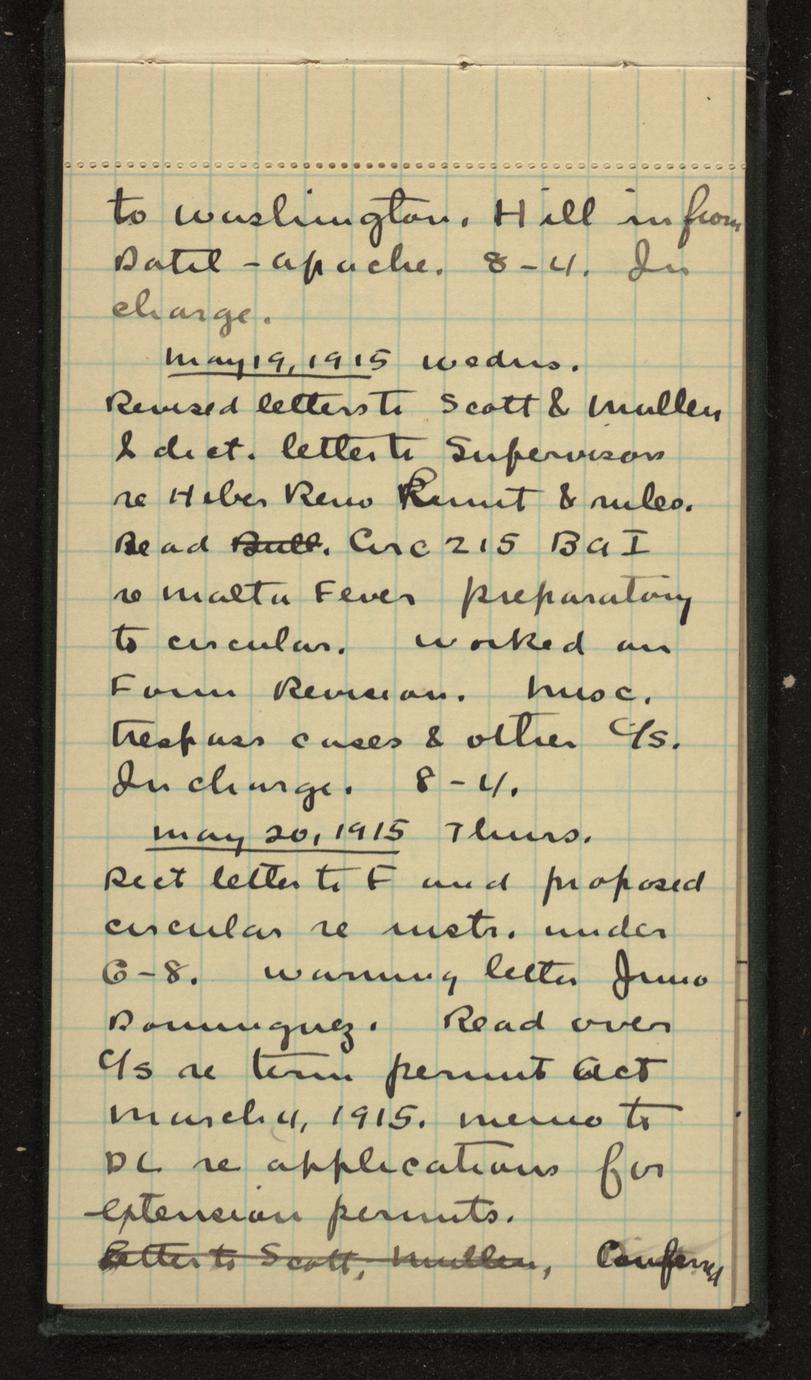 to Washington. Hill in from
Datil - Apache. 8-4. In
charge.
May 19, 1915 Wednes.
Revised letters to Scott & Mullen
& dict. letter to Supervisors
re Heber Reno Permit & rules.
Read Bull. Circ 215 BAI
re Malta Fever preparatory
to circular. Worked on
Form Revision. Misc.
trespass cases & other C/s.
In charge. 8-4.
May 20, 1915 Thurs.
Dict letter to F and proposed
circular re instr. under
G-8. Warning letter
Dominguez. Read over
C/s re term permit Act
March 4, 1915. Memo to
DL re applications for
extension permits.
Letter to Scott, Mullen, Conferred